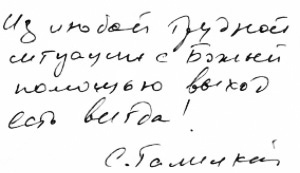 Из любой трудной
ситуации с Божьей
помощью выход
есть всегда!
С. Галицкий